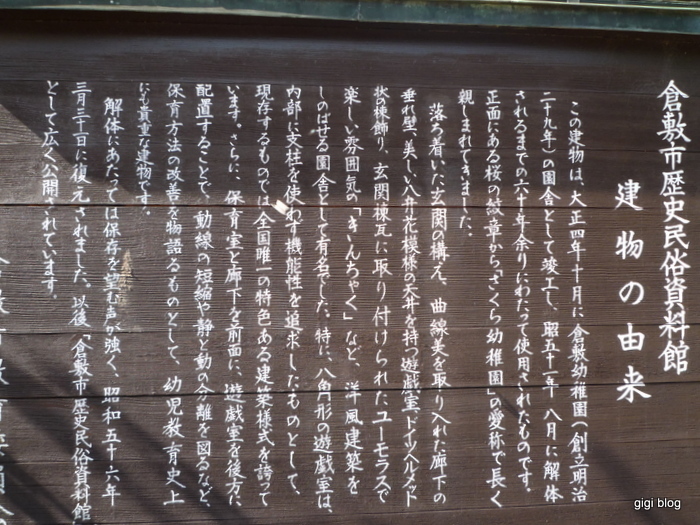 倉敷市歴史民俗資料館
建物の由来
この建物は、大正四年十月に倉敷幼稚園(創立明治
二十九年)の園舎として竣工し、昭五十一年八月に解体
されるまでの六十年余りにわたって使用されたものです。
正面にある桜の紋章から「さくら幼稚園」の愛称で長く
親しまれてきました。
落ち着いた玄関の構え、曲線美を取り入れた廊下の
垂れ壁、美しい八弁花模様の天井を持つ遊戯室、ドイツヘルメド
状の棟飾り、玄関棟瓦に取り付けられたユーモラスで
楽しい雰囲気の「きんちゃく」など、洋風建築を
しのばせる園舎として有名でした。特に、八角形の遊戯室は、
内部に支柱を使わず機能性を追求したものとして、
現存するものでは全国唯一の特色ある建築様式を誇って
います。さらに、保育室と廊下を前面に、遊戯室を後方に
配置することで、動線の短縮や静と動の分離を図るなど、
保育方法の改善を物語るものとして、幼児教育史上
にも貴重な建物です。
解体にあたっては保存を望む声が強く、昭和五十六年
三月三十日に復元されました。以後「倉敷市歴史民俗資料館
として広く公開されています。
倉敷市教育委員会
gigi blog